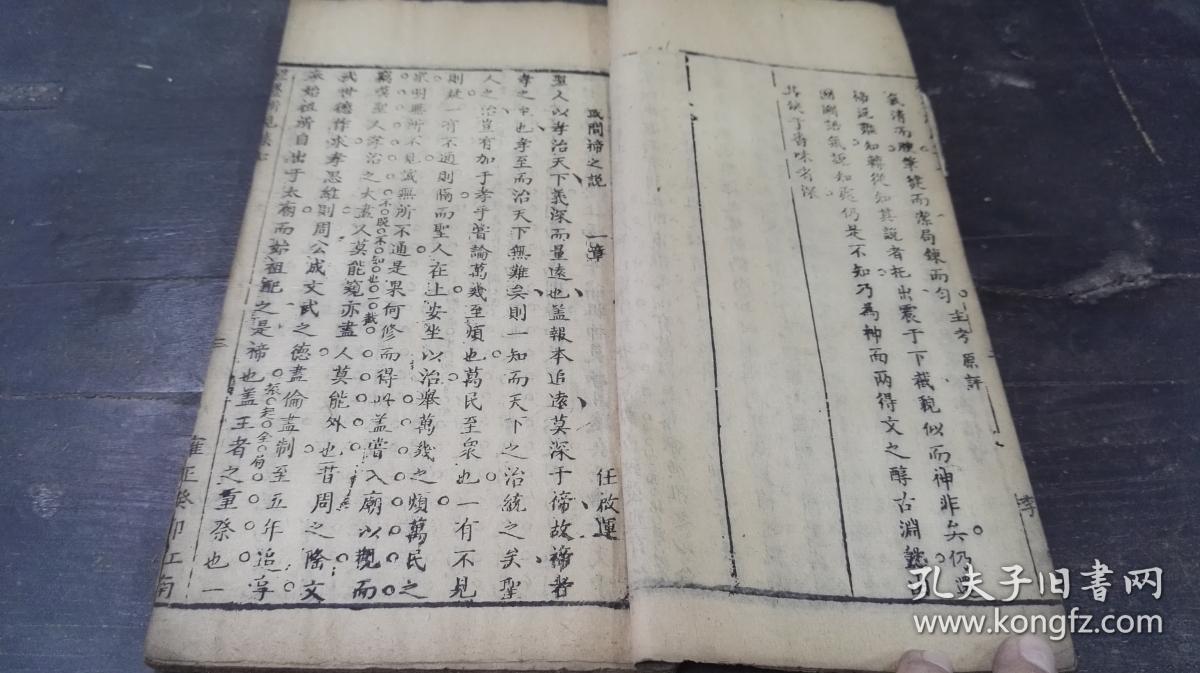 氣清而腴筆健而潔局鍊而勻 主考原評
㮣說難知轉從知其說者托出震于下截貌似而神非矣仍
圈圈語氣說知處仍是不知乃為神而兩得文之醇古淵
李
或問禘之說 一章 任啟運
聖人以孝治天下義深而量遠也蓋報本追遠莫深于禘故禘者
孝之至也孝至而治天下無難矣則一知而天下之治統之矣聖
人之治豈有加于孝乎嘗論萬幾至煩也萬民至眾也一有不見
則蔽一有不通則隔而聖人在上安坐以治舉萬幾之煩萬民之
眾明無所不見誠無所不通是果何修而得此蓋嘗入廟以觀而
竊嘆聖人孝治之大盡人莫能窺亦盡人莫能外也昔周之隆文
武世德作求孝思維則周公成文武之德盡倫盡制至五年追享
始祖所自出于太廟而始祖配之是禘也蓋王者之重祭也一
三
雍正癸卯江南
孔夫子旧书网
www.kongfz.com